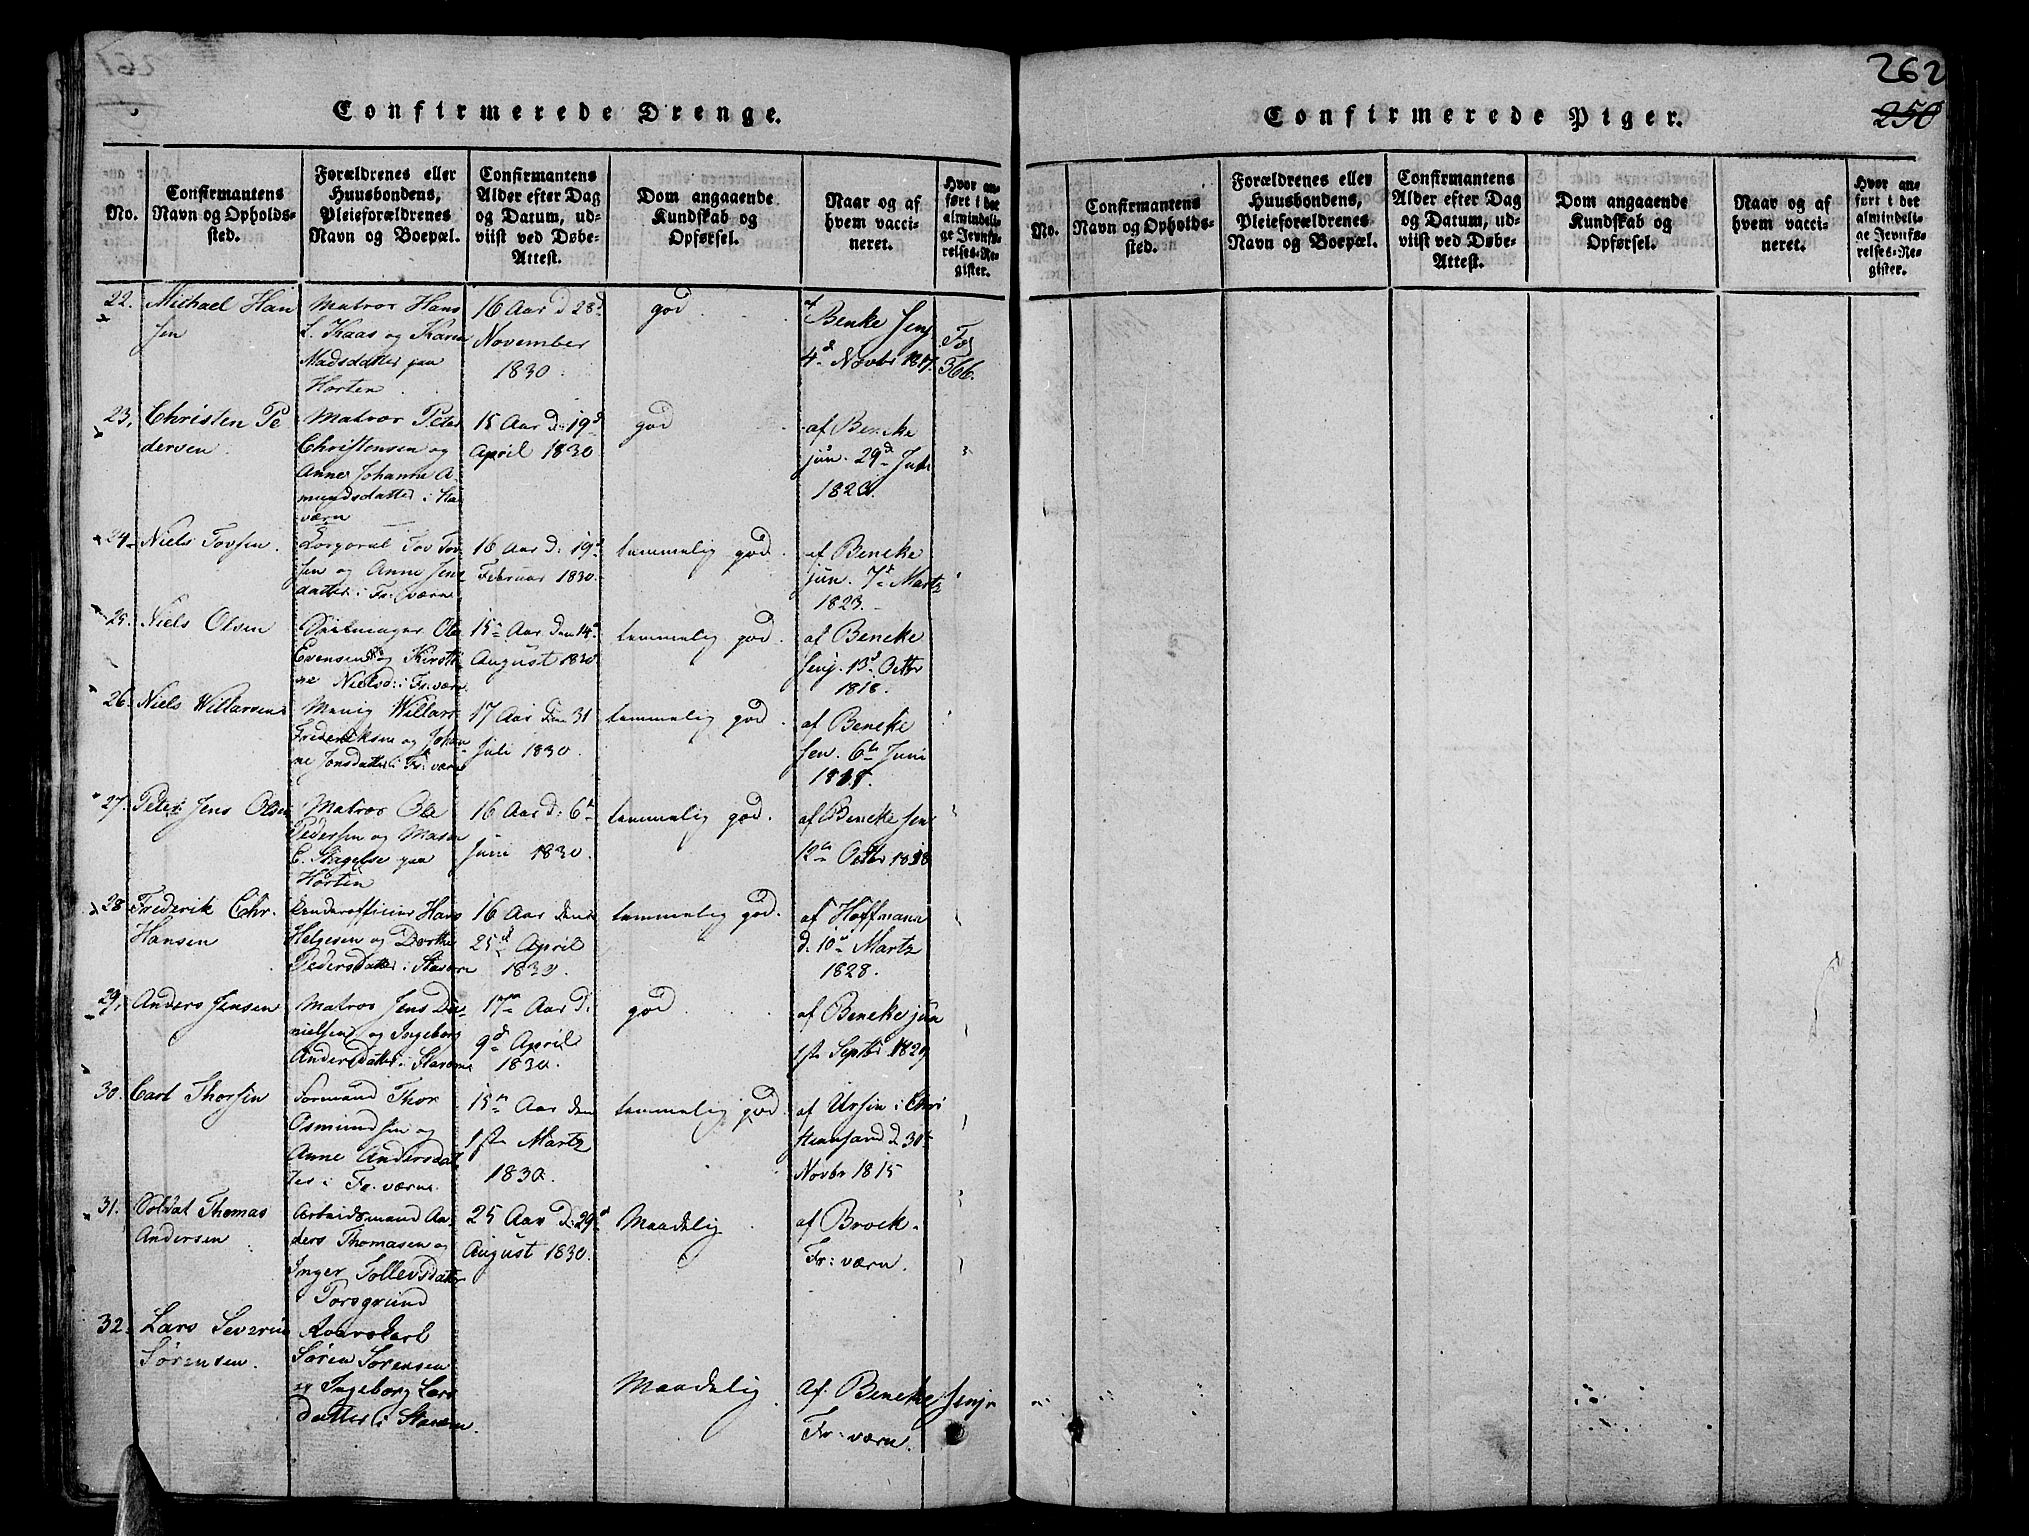 262
250
Confirmerede Drenge.
No.
Confirmantens
Navn og Opholds-
sted.
Forældrenes eller
Huusbondens,
Pleieforældrenes
Navn og Boepæl.
Confirmantens
Alder efter Dag
og Datum, ud-
viist ved Døbe-
Attest.
Dom angaaende
Kundskab og
Opførsel.
Naar og af
hvem vacci-
neret.
Hvor an-
ført i det
almindeli-
ge Jevnfø-
relses-Re-
gister.
22.
Michael Han
sen
Matros Hans
L. Kaas og Karen
Madsdatter paa
Horten
16 Aar d 28d
November
1830.
god
af
Benke senj
4d Novbr 1817.
Fol
366.
23.
Christen Pe
dersen.
Matros Peter
Christensen og
Anne Johanne A-
mundsdatter i Sta
værn
15 Aar D. 19d
April 1830
god
af Beneke
jun. 29d Juli
24.
Niels Tovsen.
Corporal Tov Tov
sen og Anne Jens
datter i Fr: værn
16 Aar D. 19d
Februar 1830.
temmelig god.
af Beneke
jun. 7d Martz
1823.
25.
Niels Olsen
Ole
Evensen og Kirsti
ne Nielsd: i Fr: værn
15 Aar Den 14d
August 1830
temmelig god.
af Beneke
senj. 13d Octbr
1818.
26.
Niels Willarsen
Menig Willars
Frederiksen og Johan
ne Jonsdatter i Fr: værn
17 Aar Den 31
Juli 1830.
temmelig god.
af Beneke
sen. 6te Juni
27.
Peter Jens Olsen
Matros Ole
Pedersen og Maren
C. Stagelse paa
Horten
16 Aar D. 6te
Juni 1830.
temmelig god.
af Beneke sen
12te Octbr 1818
28
Frederik Chr.
Hansen
Underofficier Hans
Helgesen og Dorthe
Pedersdatter i Staværn
16 Aar den
25d April
1830.
temmelig god.
af Hoffmann
d. 10d Martz
1828.
29.
Anders Jensen
Matros Jens Da-
nielsen og Ingeborg
Andersdatter i Staværn
17 Aar d.
9d April
1830.
god
af Beneke jun
1ste Septbr 1829
30.
Carl Thorsen
Formand Thor
Osmundsen og
Anne Andersdat
ter i Fr. værn.
15 Aar den
1ste Martz
1830.
temmelig god
af Ursin i Chri
stiansand d. 30te
Novbr 1815
31.
Soldat Thomas
Andersen
Arbeidsmand An-
ders Thomasen og
Inger Tollevsdatter
i Porsgrund
25 Aar D. 29d
August 1830.
Maadelig
af Brock
Fr: værn.
32.
Lars Severin
Sørensen.
Søren Sørensen
og Ingeborg Lars
datter i Staværn
Maadelig
Af. Beneke senjr
Fr: værn.
Confirmerede Piger.
No.
Confirmantens
Navn og Opholds-
sted.
Forældrenes eller
Huusbondens,
Pleieforældrenes
Navn og Boepæl.
Confirmantens
Alder efter Dag
og Datum, ud-
viist ved Døbe-
Attest.
Dom angaaende
Kundskab og
Opførsel.
Naar og af
hvem vacci-
neret.
Hvor an-
ført i det
almindeli-
ge Jevnfø-
relses-Re-
gister.